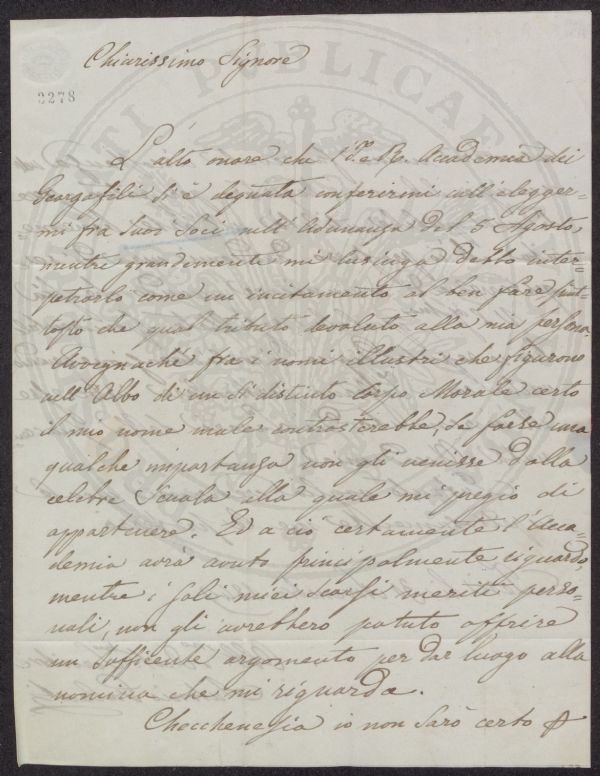 Chiarissimo Signore
2278
L'alto onore che l'I. e R. Accademia dei
Georgofili si è degnata conferirmi coll'elegger=
mi fra Suoi Soci nell'Adunanza del 5 Agosto,
mentre grandemente mi lusinga debbo inter=
petrarlo come un incitamento al ben fare piut=
tosto che qual tributo devoluto alla mia persona.
Avvignaché fra i nomi illustri che figurono
nell'Albo di un sì distinto Corpo Morale certo
il mio nome male contrasterebbe, se forse una
qualche importanza non gli venisse dalla
celebre Scuola alla quale mi pregio di
appartenere. Ed a ciò certamente l'Acca=
demia avrà avuto principalmente riguardo,
mentre i soli miei scarsi meriti perso=
nali, non gli avrebbero potuto offrire
un sufficente argomento per dar luogo alla
nomina che mi riguarda.
Checchenesia io non sarò certo